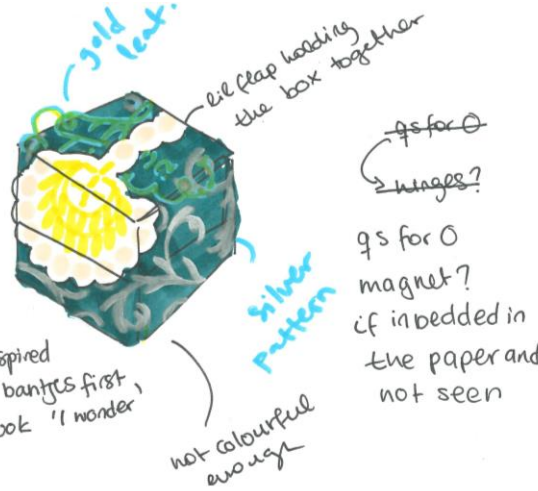 gold
leaf.
lil flap holding
the box together
qs for O
hinges?
qs for O
magnet?
if inbedded in
the paper and
not seen
silver
pattern
spired
first,
ook "I wonder
not colourful
enough